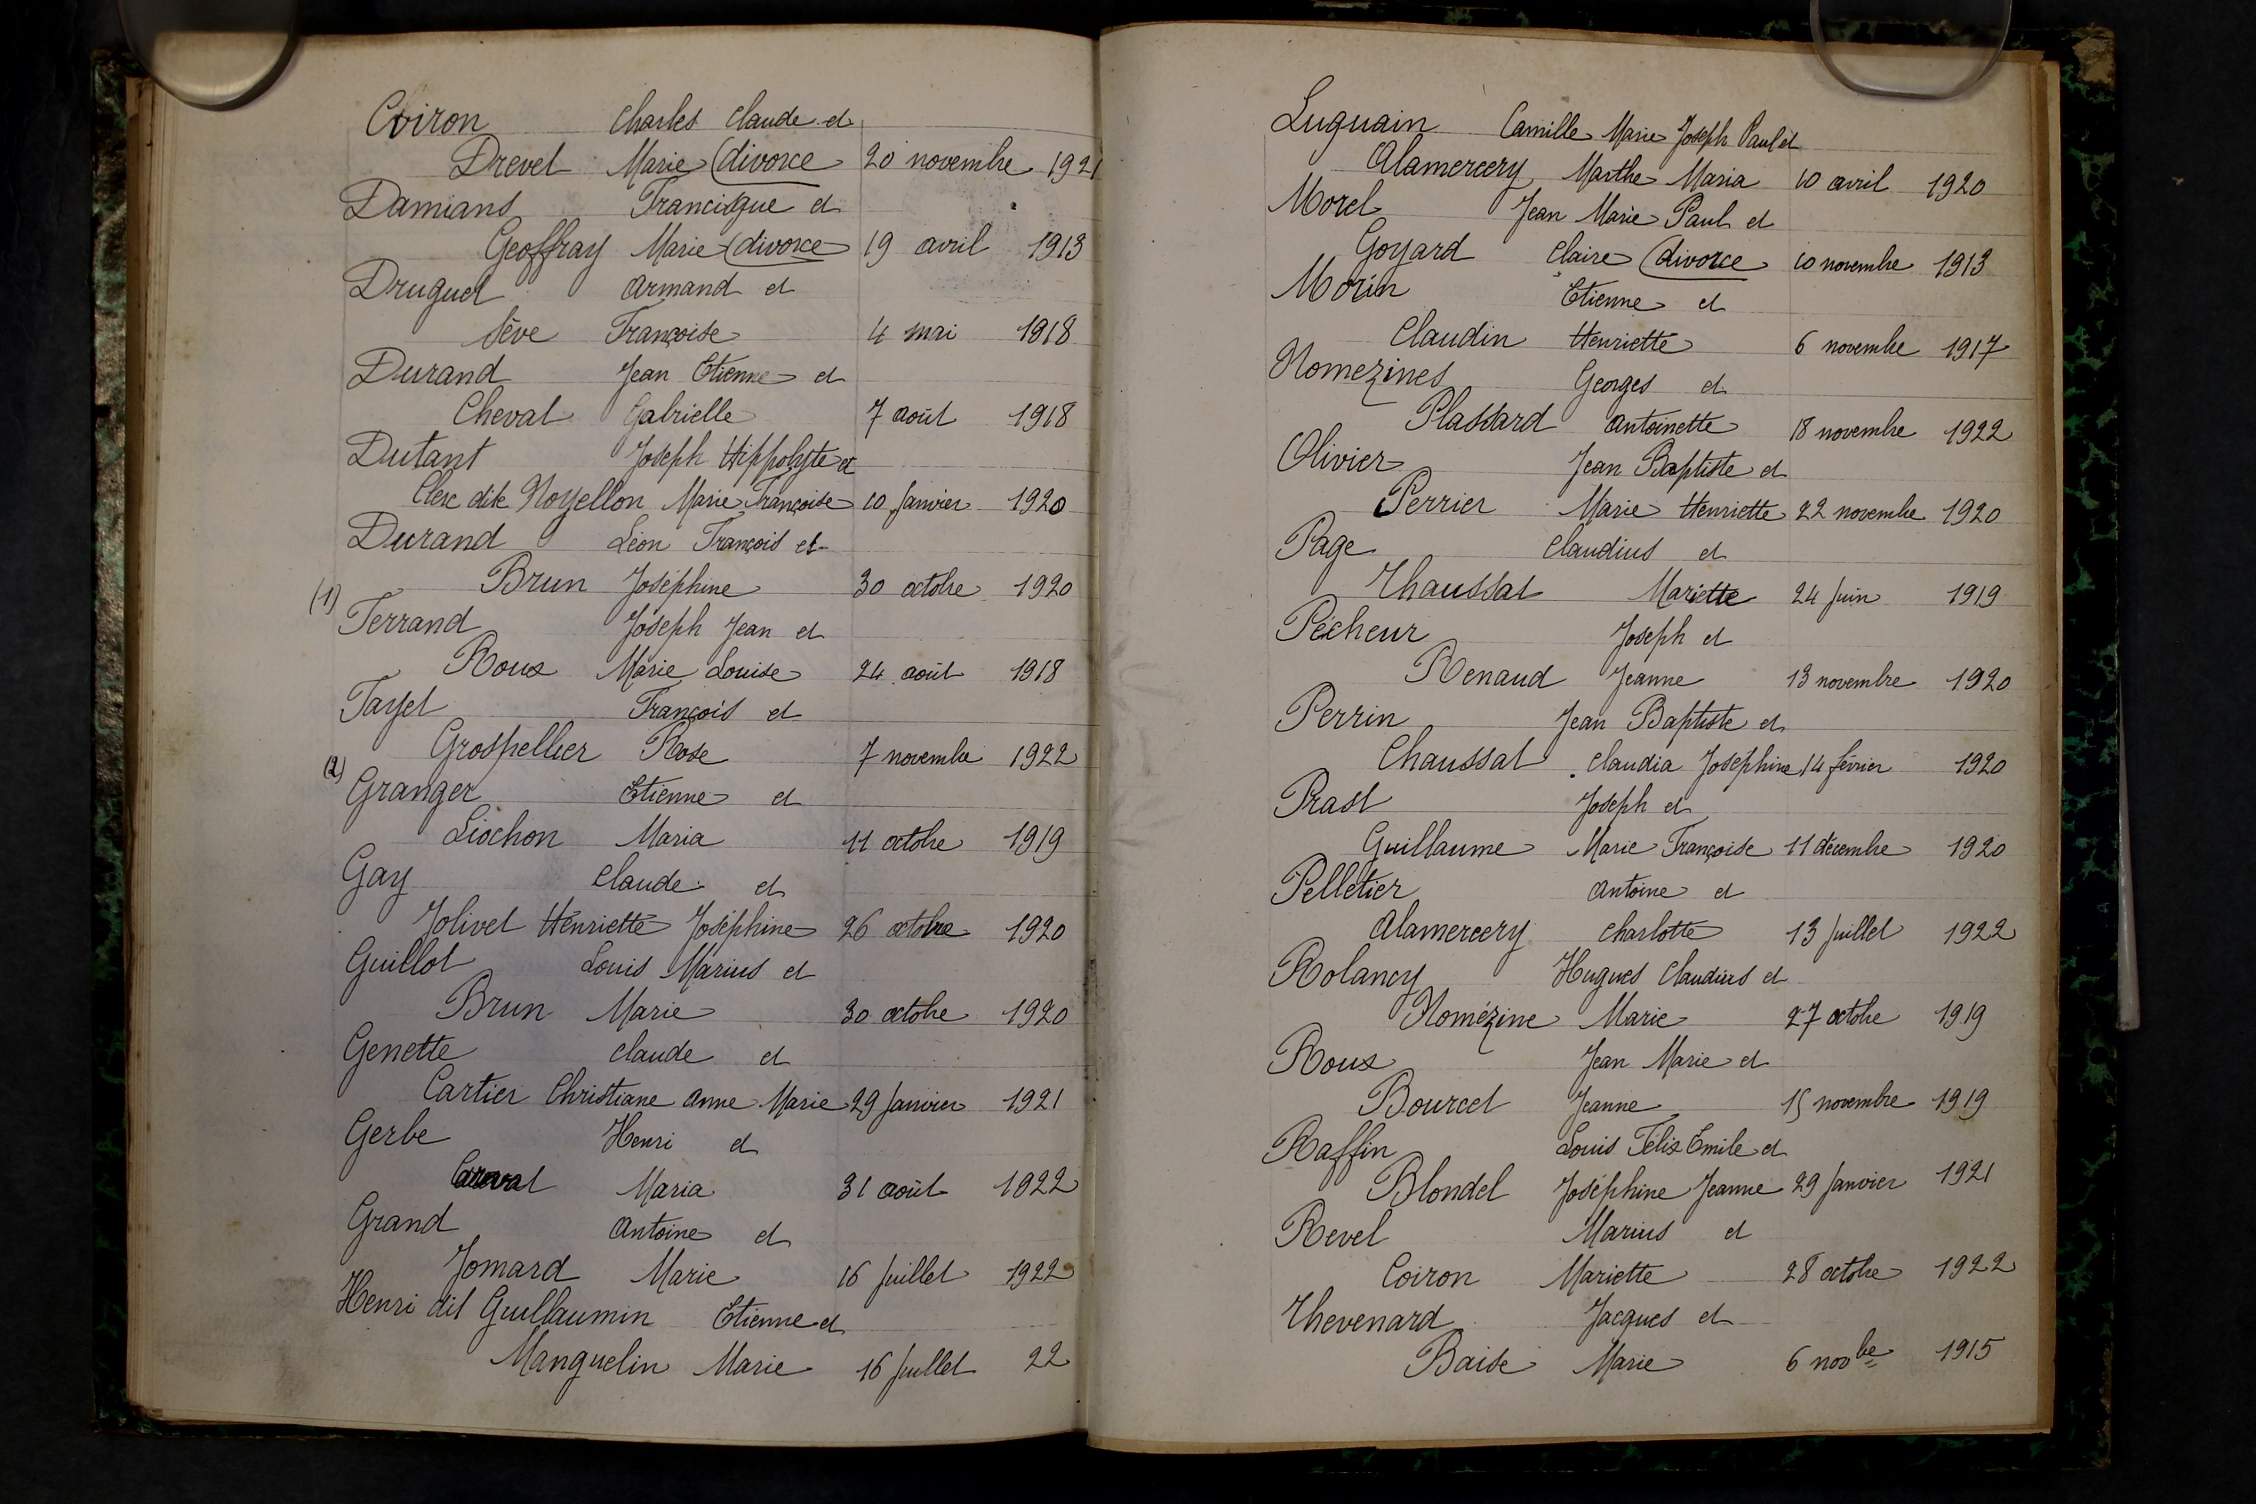 Coiron Charles Claude et
Drevet Marie (divorce 20 novembre 1921
Damians Francisque et
Geoffray Marie (divorce 19 avril 1913
Druguet Armand et
Sève Françoise 4 mai 1918
Durand Jean Etienne et
Cheval Gabrielle 7 août 1918
Dutant Joseph Hippolyte et
Clerc dite Noyellon Marie Françoise 10 Janvier 1920
Durand Léon François et
Brun Joséphine 30 octobre 1920
(1)
Ferrand Joseph Jean et
Roux Marie Louise 24 août 1918
Fayet François et
Grospellier Rose 7 novembre 1922
(2)
Granger Etienne et
Liochon Maria 11 octobre 1919
Gay Claude et
Jolivet Henriette Joséphine 26 octobre 1920
Guillot Louis Marius et
Brun Marie 30 octobre 1920
Genette Claude et
Cartier Christiane Anne Marie 29 Janvier 1921
Gerbe Henri et
Maria 31 août 1922
Grand Antoine et
Jomard Marie 16 Juillet 1922
Henri dit Guillaumin Etienne et
Manguelin Marie 16 Juillet 22
Luguain Camille Marie Joseph Paul et
Alamercery Marthe Maria 10 avril 1920
Morel Jean Marie Paul et
Goyard Claire (divorce 10 novembre 1913
Morin Etienne et
Claudin Henriette 6 novembre 1917
Nomezines Georges et
Plassard Antoinette 18 novembre 1922
Olivier Jean Baptiste et
Perrier Marie Henriette 22 novembre 1920
Page Claudius et
Chaussat Mariette 24 Juin 1919
Pécheur Joseph et
Renaud Jeanne 13 novembre 1920
Perrin Jean Baptiste et
Chaussat Claudia Joséphine 14 février 1920
Prast Joseph et
Guillaume Marie Françoise 11 décembre 1920
Pelletier Antoine et
Alamercery Charlotte 13 Juillet 1922
Rolancy Hugues Claudius et
Nomézine Marie 27 octobre 1919
Roux Jean Marie et
Bourcet Jeanne 15 novembre 1919
Raffin Louis Félix Emile et
Blondel Joséphine Jeanne 29 Janvier 1921
Revel Marius et
Coiron Mariette 28 octobre 1922
Thevenard Jacques et
Baise Marie 6 novbe 1915